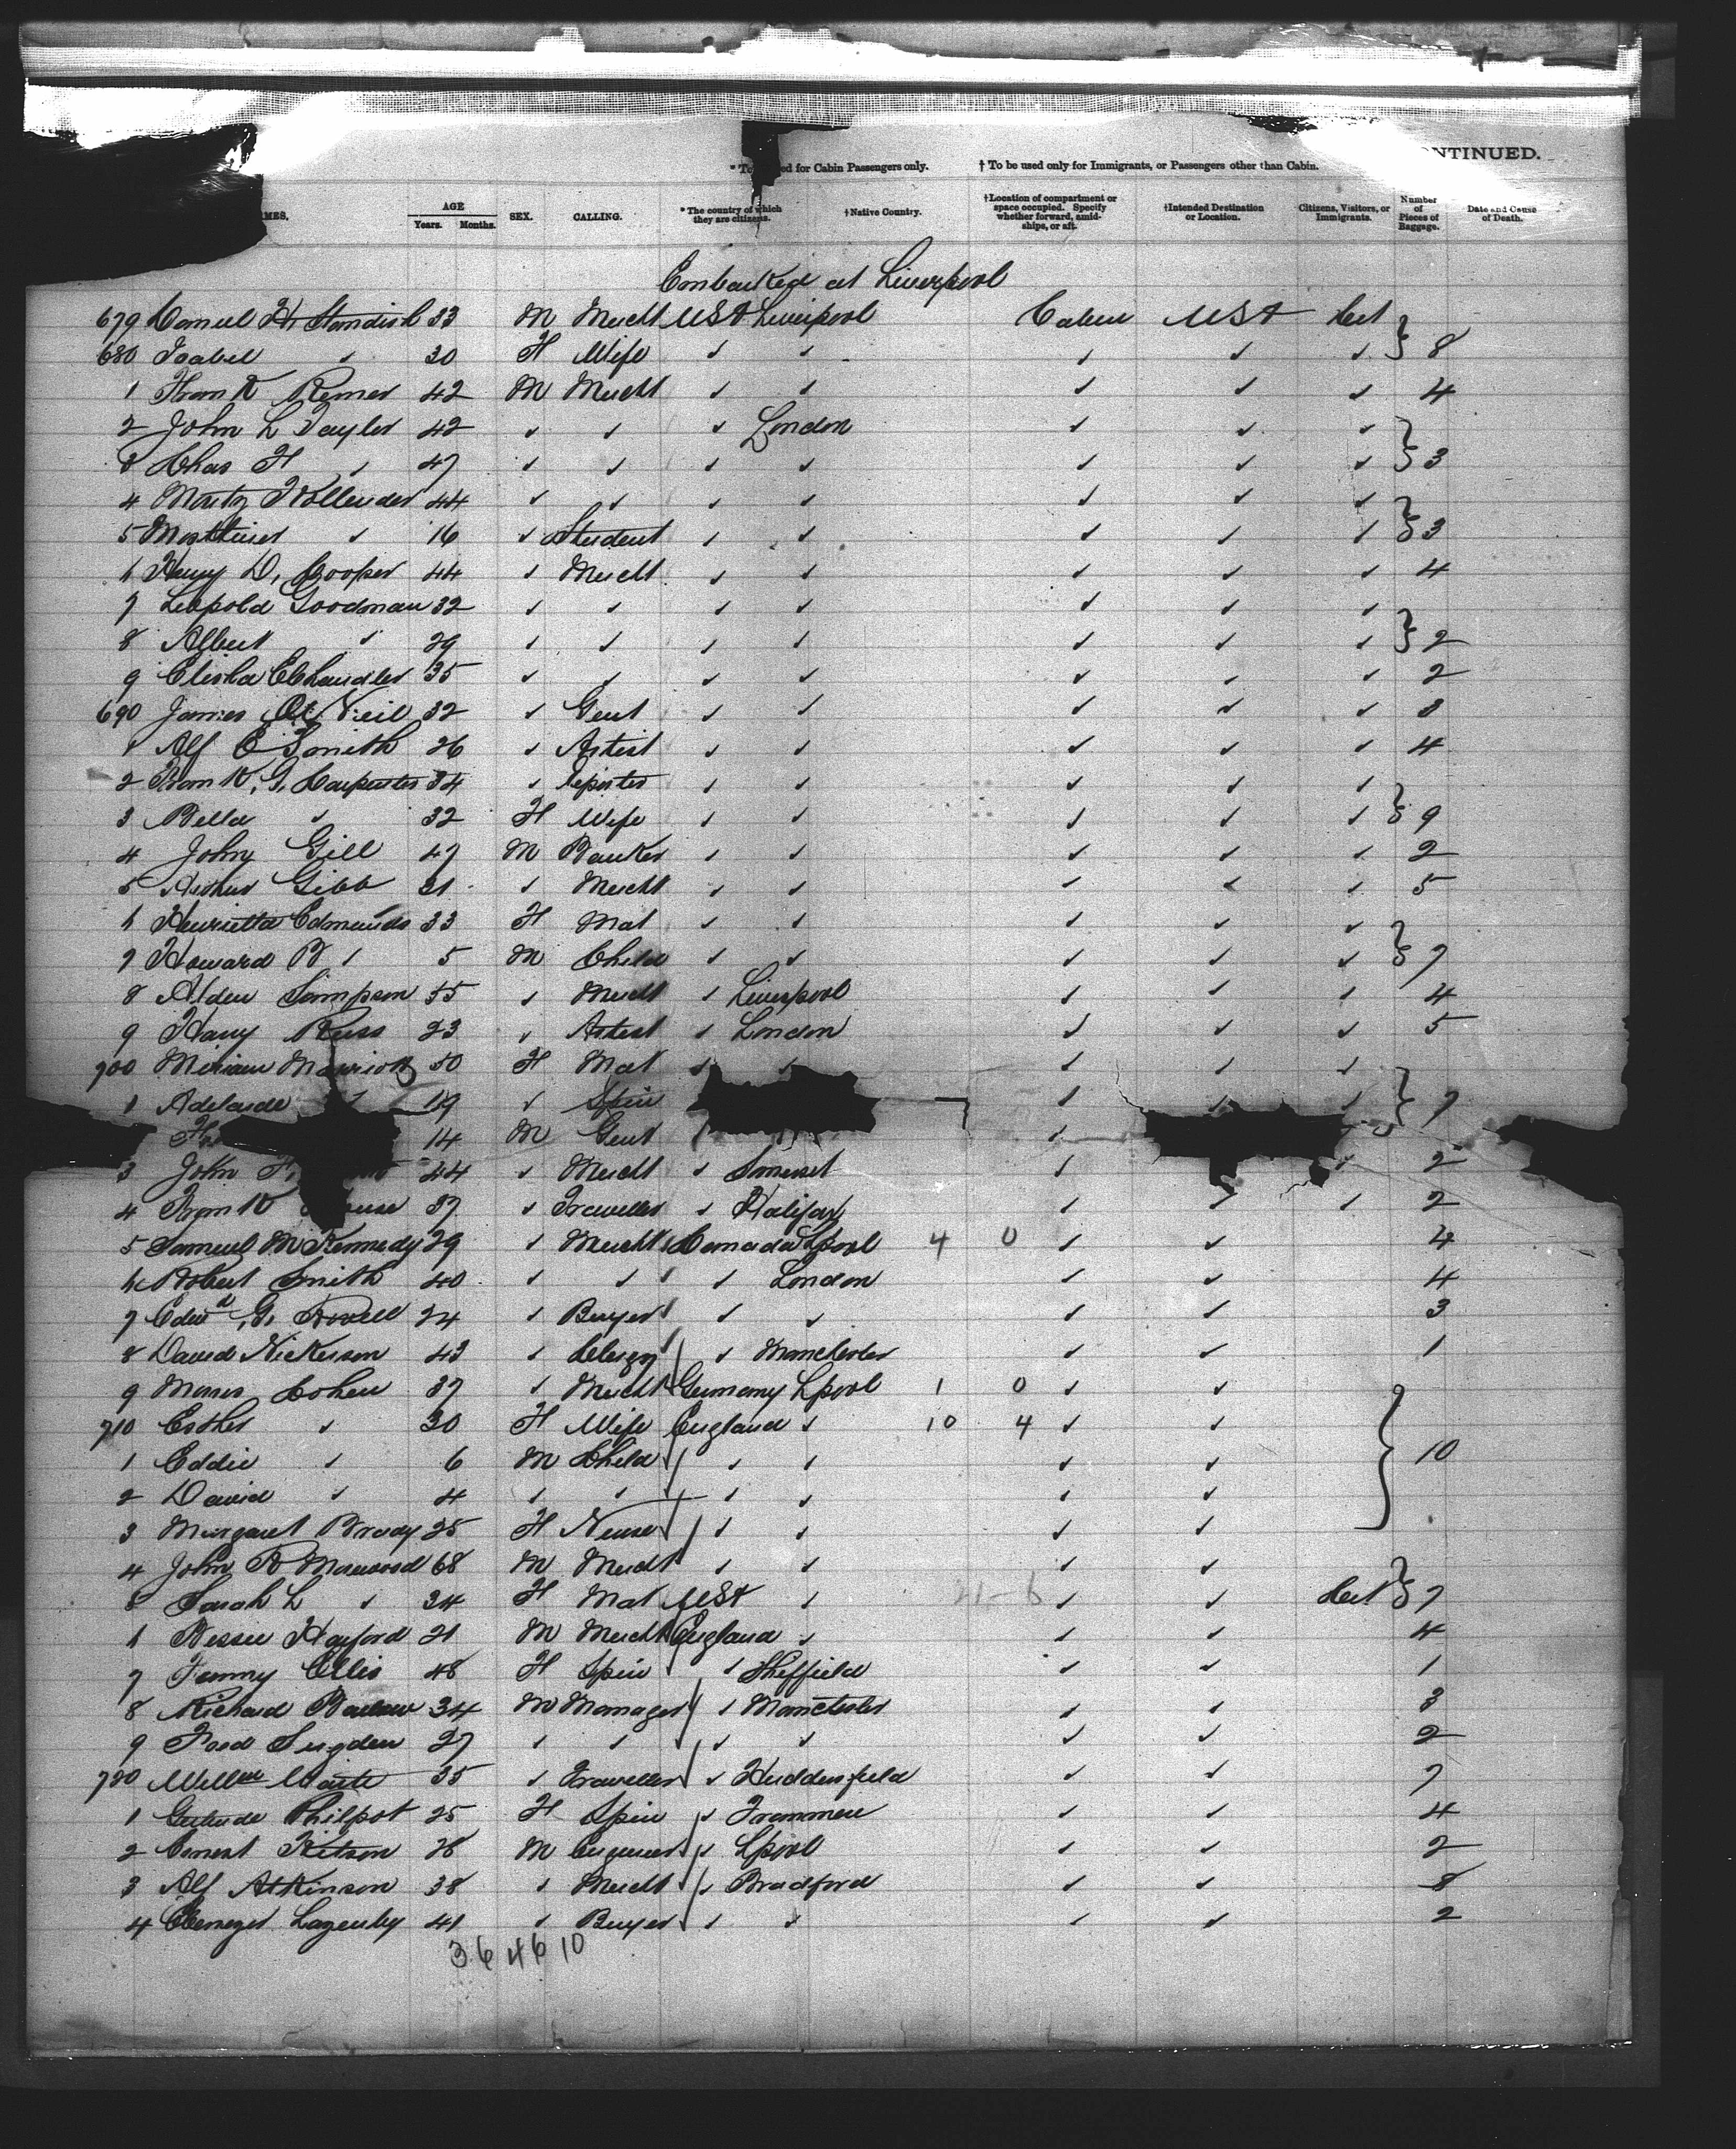 NTINUED.
ed for Cabin Passengers only. † To be used only for Immigrants, or Passengers other than Cabin.
MES. AGE Years. Months. SEX. CALLING. * The country of which they are citizens. † Native Country. † Location of compartment or space occupied. Specify whether forward, amidships, or aft. † Intended Destination or Location. Citizens, Visitors, or Immigrants. Number of Pieces of Baggage. Date and Cause of Death.
Embarked at Liverpool
679 H. Standish 33 M Mercht USA Liverpool Cabin USA
680 Isabel ✓ 30 F Wife ✓ ✓ ✓ ✓ ✓ } 8
1 42 M Mercht ✓ ✓ ✓ ✓ ✓ 4
2 John L Tayler 42 ✓ ✓ ✓ London ✓ ✓ ✓
3 Chas H ✓ 47 ✓ ✓ ✓ ✓ ✓ ✓ ✓ } 3
4 Moritz Hollender 44 ✓ ✓ ✓ ✓ ✓ ✓ ✓
5 ✓ 16 ✓ Student ✓ ✓ ✓ ✓ ✓ } 3
6 D. Cooper 44 ✓ Mercht ✓ ✓ ✓ ✓ ✓ 4
7 Leopold Goodman 32 ✓ ✓ ✓ ✓ ✓ ✓ ✓
8 Albert ✓ 29 ✓ ✓ ✓ ✓ ✓ ✓ ✓ } 2
9 Elisha Chandler 35 ✓ ✓ ✓ ✓ ✓ ✓ ✓ 2
690 James Neil 32 ✓ Gent ✓ ✓ ✓ ✓ ✓ 3
1 Alf E Smith 26 ✓ Artist ✓ ✓ ✓ ✓ ✓ 4
2 G. Carpenter 34 ✓ ✓ ✓ ✓ ✓ ✓
3 Bella ✓ 32 F Wife ✓ ✓ ✓ ✓ ✓ } 9
4 John Gill 47 M Banker ✓ ✓ ✓ ✓ ✓ 2
5 Arthur Gibb 21 ✓ Mercht ✓ ✓ ✓ ✓ ✓ 5
6 Henrietta Edmunds 33 F Mat ✓ ✓ ✓ ✓ ✓
7 Howard B ✓ 5 M Child ✓ ✓ ✓ ✓ ✓ } 7
8 Alden Sampson 55 ✓ Mercht ✓ Liverpool ✓ ✓ ✓ 4
9 Harry 23 ✓ Artist ✓ London ✓ ✓ ✓ 5
700 Miriam Marriott 50 F Mat ✓ ✓ ✓ ✓ ✓
1 Adelaide 19 ✓ Spin ✓ ✓ ✓ } 7
14 M Gent ✓
3 John 44 ✓ Mercht ✓ Somerset ✓ ✓ 2
4 37 ✓ Traveller ✓ Halifax ✓ ✓ ✓ 2
5 Samuel M Kennedy 29 ✓ Mercht Canada Lpool 4 0 ✓ ✓ 4
6 Robert Smith 40 ✓ ✓ ✓ London ✓ ✓ 4
7 Edwd. G. 24 ✓ Buyer ✓ ✓ ✓ ✓ 3
8 David Nickerson 43 ✓ Clergy ✓ Manchester ✓ ✓ 1
9 Cohen 37 ✓ Mercht Germany Lpool 1 0 ✓ ✓
710 Esther ✓ 30 F Wife England ✓ 10 4 ✓ ✓
1 Eddie ✓ 6 M Child ✓ ✓ ✓ ✓ } 10
2 David ✓ 4 ✓ ✓ ✓ ✓ ✓ ✓
3 Margaret Brady 25 F Nurse ✓ ✓ ✓ ✓
4 John R 68 M Mercht ✓ ✓ ✓ ✓
5 Sarah L ✓ 34 F Mat USA ✓ ✓ ✓ } 7
6 Bessie Hayford 21 M Mercht England ✓ ✓ ✓ 4
7 Fanny Ellis 48 F Spin ✓ Sheffield ✓ ✓ 1
8 Richard Barlow 34 M Manager ✓ Manchester ✓ ✓ 3
9 Fred Sugden 27 ✓ ✓ ✓ ✓ ✓ ✓ 2
720 Willm 35 ✓ Traveller ✓ Huddersfield ✓ ✓ 7
1 Gertrude Philpot 25 F Spin ✓ Tranmere ✓ ✓ 4
2 Ernest Kitson 28 M Engineer ✓ Lpool ✓ ✓ 2
3 Alf Atkinson 38 ✓ Mercht ✓ Bradford ✓ ✓ 8
4 Ebenezer Lazenby 41 ✓ Buyer ✓ ✓ ✓ ✓ 2
36 46 10